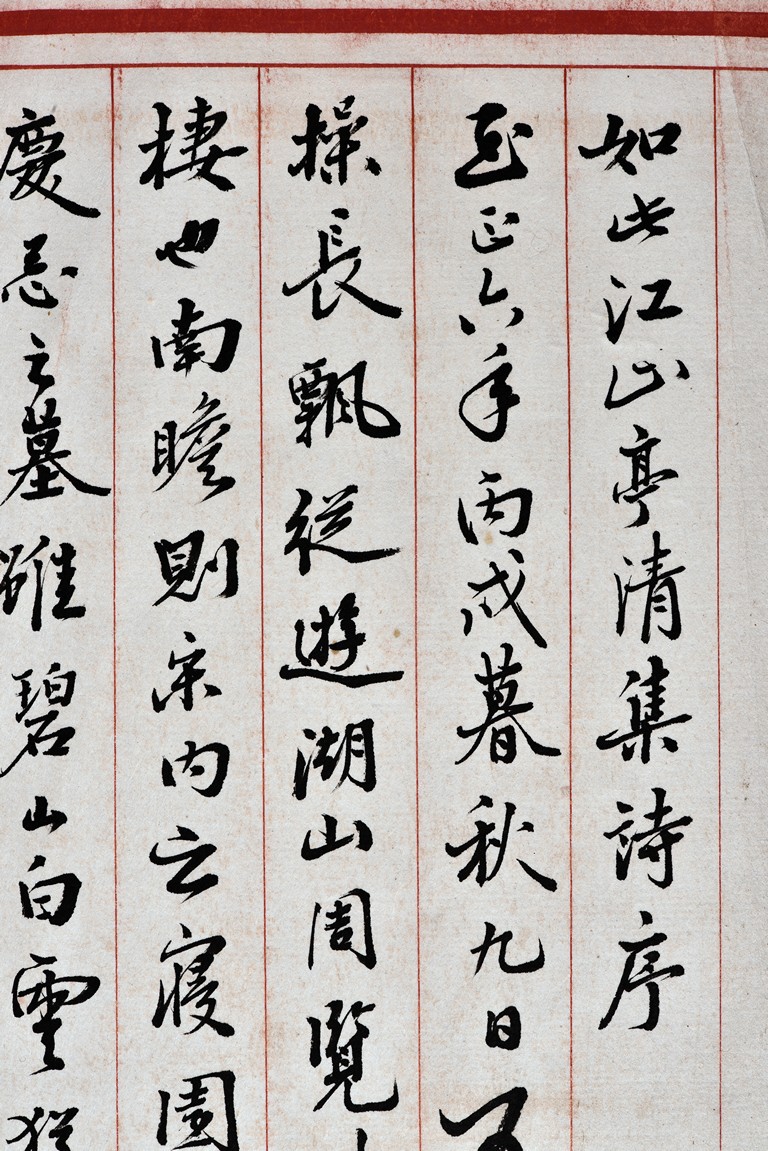 如此江山亭清集詩序
至正六年丙戌暮秋九日
操長瓢從遊湖山周覽
棲也南瞻則宋內之寢園
慶忌之墓雖碧山白雲猶